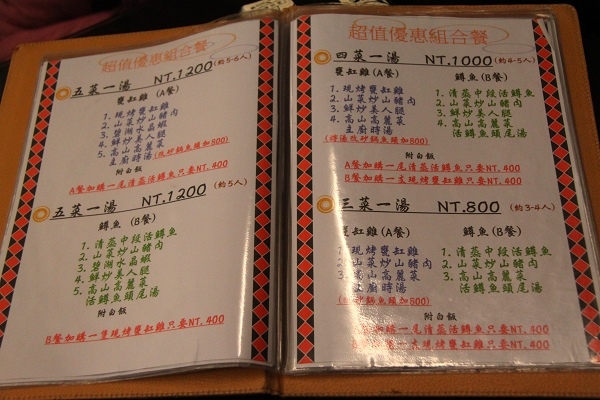 超值優惠組合餐
五菜一湯 NT.1200 (約5-6人)
甕缸雞 (A餐)
1. 現烤甕缸雞
2. 山菜炒山豬肉
3. 碧湖水晶蝦
4. 鮮炒美人腿
5. 高山高麗菜
主廚時湯 (改砂鍋魚頭加800)
附白飯
A餐加購一尾清蒸活鱒魚只要NT.400
五菜一湯 NT.1200 (約5人)
鱒魚 (B餐)
1. 清蒸中段活鱒魚
2. 山菜炒山豬肉
3. 碧湖水晶蝦
4. 鮮炒美人腿
5. 高山高麗菜
活鱒魚頭尾湯
附白飯
B餐加購一隻現烤甕缸雞只要NT.400
超值優惠組合餐
四菜一湯 NT.1000 (約4-5人)
甕缸雞 (A餐)
1. 現烤甕缸雞
2. 山菜炒山豬肉
3. 鮮炒美人腿
4. 高山高麗菜
主廚時湯
鱒魚 (B餐)
1. 清蒸中段活鱒魚
2. 山菜炒山豬肉
3. 鮮炒美人腿
4. 高山高麗菜
活鱒魚頭尾湯
改砂鍋魚頭加800)
附白飯
A餐加購一尾清蒸活鱒魚只要NT.400
B餐加購一支現烤甕缸雞只要NT.400
三菜一湯 NT.800 (約3-4人)
甕缸雞 (A餐)
現烤甕缸雞
山菜炒山豬肉
高山高麗菜
主廚時湯
鱒魚 (B餐)
1. 清蒸中段活鱒魚
2. 山菜炒山豬肉
3. 高山高麗菜
活鱒魚頭尾湯
砂鍋魚頭加800)
附白飯
加購一尾清蒸活鱒魚只要NT.400
B餐加購一支現烤甕缸雞只要NT.400